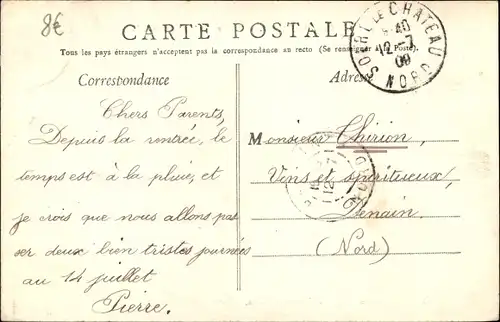 8€
CARTE POSTALE
Tous les pays étrangers n'acceptent pas la correspondance au recto (Se renseigner à la Poste).
Correspondance
Adresse
SORE LE CHATEAU
8-40
12-7
09
NORD
Chers Parents,
Depuis la rentrée, le
temps est à la pluie, et
je crois que nous allons pas
ser deux bien tristes journées
au 14 juillet
Pierre.
Monsieur Thirion,
Vins et spiritueux,
Denain.
(Nord)